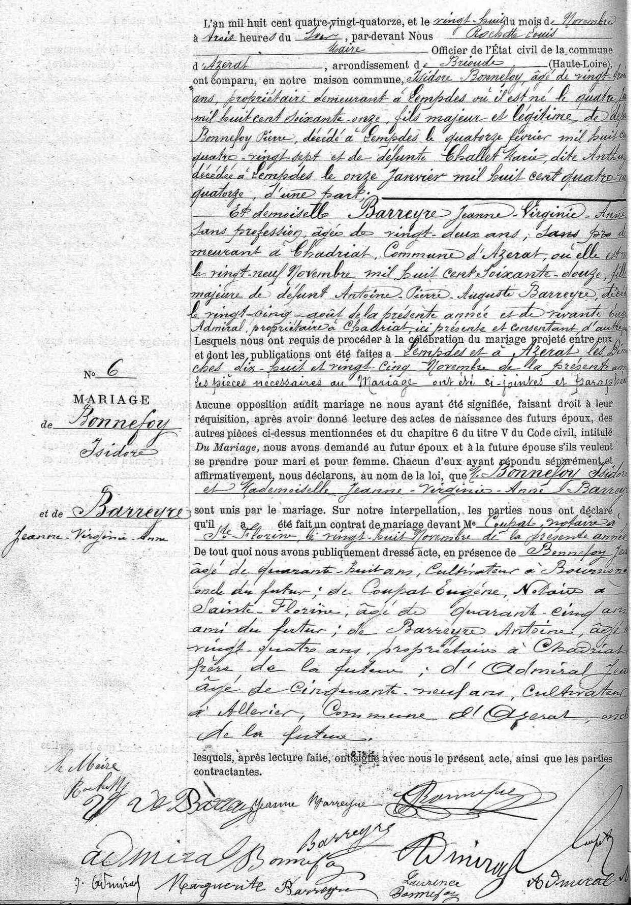 L'an mil huit cent quatre-vingt-quatorze, et le vingt huit du mois de Novembre
à trois heures du Soir, par-devant Nous Rochette Louis
Maire Officier de l'État civil de la commune
d'Azerat, arrondissement de Brioude (Haute-Loire),
ont comparu, en notre maison commune, Isidore Bonnefoy, âgé de vingt
ans, propriétaire demeurant à Lempdes où il est né le quatre
mil huit cent soixante onze, fils majeur et légitime, de
Bonnefoy Pierre, décédé à Lempdes le quatorze février mil huit
quatre-vingt sept et de défunte Challet Marie, dite
décédée à Lempdes le onze Janvier mil huit cent quatre-
quatorze, d'une part;
Et demoiselle Barreyre Jeanne-Virginie-Anne
sans profession, âgée de vingt-deux ans;
meurant à Chadriat, Commune d'Azerat, où elle est
le vingt-neuf Novembre mil huit cent Soixante-douze, fille
majeure de défunt Antoine-Pierre Auguste Barreyre,
le vingt-cinq août de la présente année et de vivante
Admiral, propriétaire à Chadriat, ici présente et consentant, d'autre
Lesquels nous ont requis de procéder à la célébration du mariage projeté entre eux
et dont les publications ont été faites à Lempdes et à Azerat les
ches dix-huit et vingt-cinq Novembre de la présente
les pièces nécessaires au Mariage ont été ci-jointes et
Aucune opposition audit mariage ne nous ayant été signifiée, faisant droit à leur
réquisition, après avoir donné lecture des actes de naissance des futurs époux, des
autres pièces ci-dessus mentionnées et du chapitre 6 du titre V du Code civil, intitulé
Du Mariage, nous avons demandé au futur époux et à la future épouse s'ils veulent
se prendre pour mari et pour femme. Chacun d'eux ayant répondu séparément et
affirmativement, nous déclarons, au nom de la loi, que Mr Bonnefoy Isidore
et Mademoiselle Jeanne-Virginie-Anne
sont unis par le mariage. Sur notre interpellation, les parties nous ont déclaré
qu'il a été fait un contrat de mariage devant Me Coupat, notaire à
Ste Florine, le vingt-huit Novembre de la présente année
De tout quoi nous avons publiquement dressé acte, en présence de Bonnefoy
âgé de quarante-huit ans, Cultivateur à
oncle du futur; de Coupat Eugène, Notaire à
Sainte-Florine, âgé de Quarant-cinq ans
ami du futur; de Barreyre Antoine, âgé
vingt-quatre ans, propriétaire à Chadriat
frère de la future; d'Admiral
âgé de Cinquante-neuf ans, Cultivateur
à Allevier, Commune d'Azerat,
de la future.
lesquels, après lecture faite, ont signé avec nous le présent acte, ainsi que les parties
contractantes.
No 6
MARIAGE
de Bonnefoy
Isidore
et de Barreyre
Jeanne-Virginie-Anne
le Maire
Rochette
Jeanne Barreyre
Bonnefoy
Barreyre
admiral Bonnefoy Admiral
J. Admiral Marguerite Barreyre Laurence
Bonnefoy Admiral